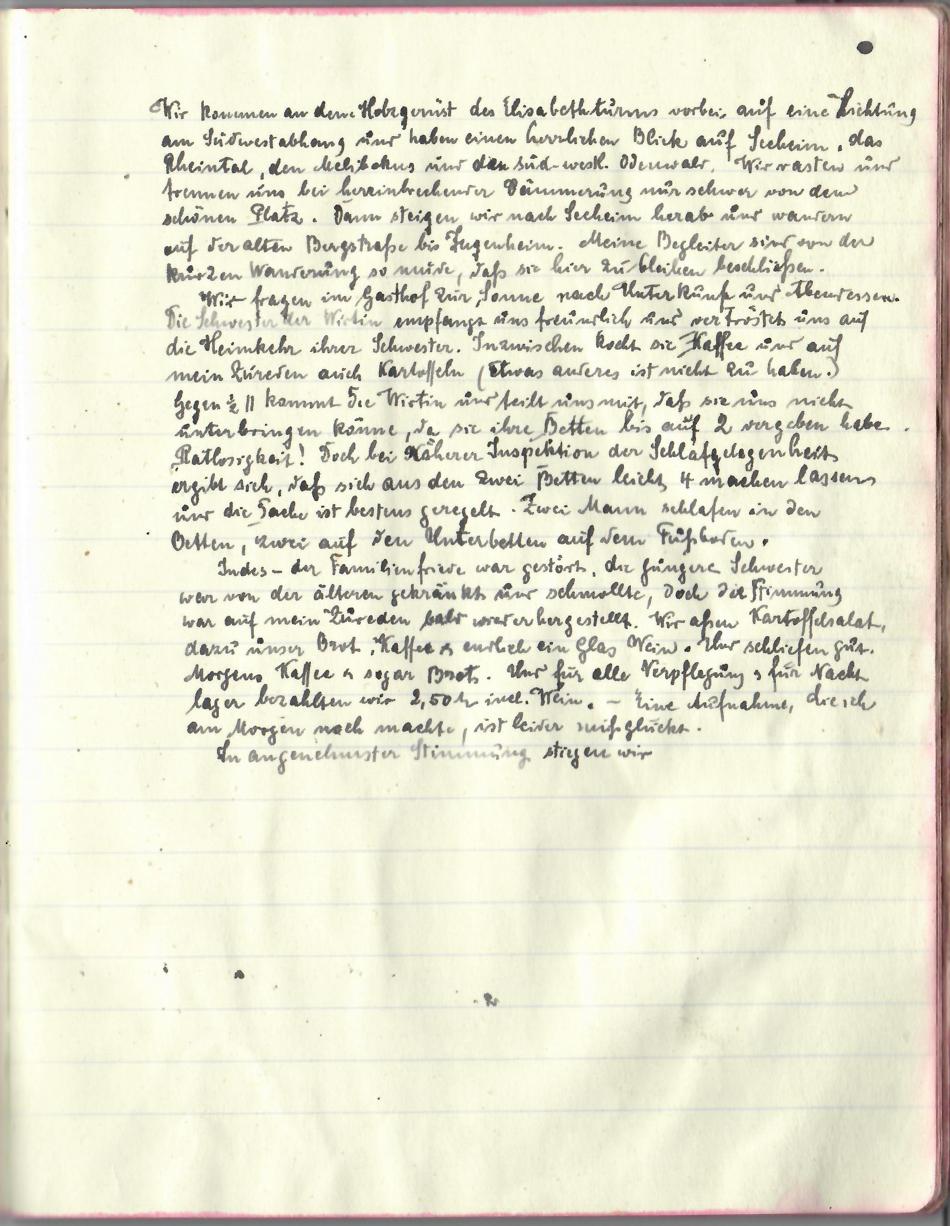 Wir kommen an dem Holzgerüst des Elisabethturms vorbei auf eine Lichtung
am Südwestabhang und haben einen herrlichen Blick auf Seeheim, das
Rheintal, den Melibokus und den süd-westl. Odenwald. Wir rasten und
trennen uns bei hereinbrechender Dämmerung nur schwer von dem
schönen Platz. Dann steigen wir nach Seeheim herab und wandern
auf der alten Bergstraße bis Jugenheim. Meine Begleiter sind von der
kurzen Wanderung so müde, daß sie hier zu bleiben beschließen.
Wir fragen im Gasthof zur Sonne nach Unterkunft und Abendessen.
Die Schwester der Wirtin empfängt uns freundlich und vertröstet uns auf
die Heimkehr ihrer Schwester. Inzwischen kocht sie Kaffee und auf
mein Zureden auch Kartoffeln (etwas anderes ist nicht zu haben.)
Gegen ½ 11 kommt die Wirtin und teilt uns mit, daß sie uns nicht
unterbringen könne, da sie ihre Betten bis auf 2 vergeben habe.
Ratlosigkeit! Doch bei näherer Inspektion der Schlafgelegenheit
ergibt sich, daß sich aus den zwei Betten leicht 4 machen lassen
und die Sache ist bestens geregelt. Zwei Mann schlafen in den
Betten, zwei auf den Unterbetten auf dem Fußboden.
Indes – der Familienfriede war gestört, die jüngere Schwester
war von der älteren gekränkt und schmollte, doch die Stimmung
war auf mein Zureden bald wiederhergestellt. Wir aßen Kartoffelsalat,
dazu unser Brot, Kaffee & endlich ein Glas Wein. Und schliefen gut.
Morgens Kaffee & sogar Brot. Und für alle Verpflegung & für Nacht
lager bezahlten wir 2,50 M incl. Wein. – Eine Aufnahme, die ich
am Morgen noch machte, ist leider mißglückt.
In angenehmster Stimmung stiegen wir